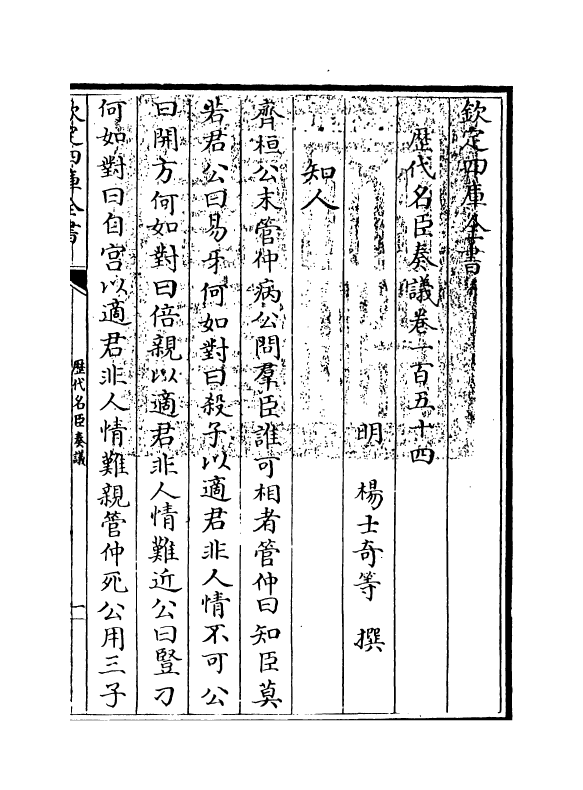 欽定四庫全書
歴代名臣奏議卷一百五十四
明 楊士奇等 撰
知人
齊桓公末管仲病公問羣臣誰可相者管仲曰知臣莫
若君公曰易牙何如對曰殺子以適君非人情不可公
曰開方何如對曰倍親以適君非人情難近公曰豎刁
何如對曰自宮以適君非人情難親管仲死公用三子
欽定四庫全書
歴代名臣奏議
一